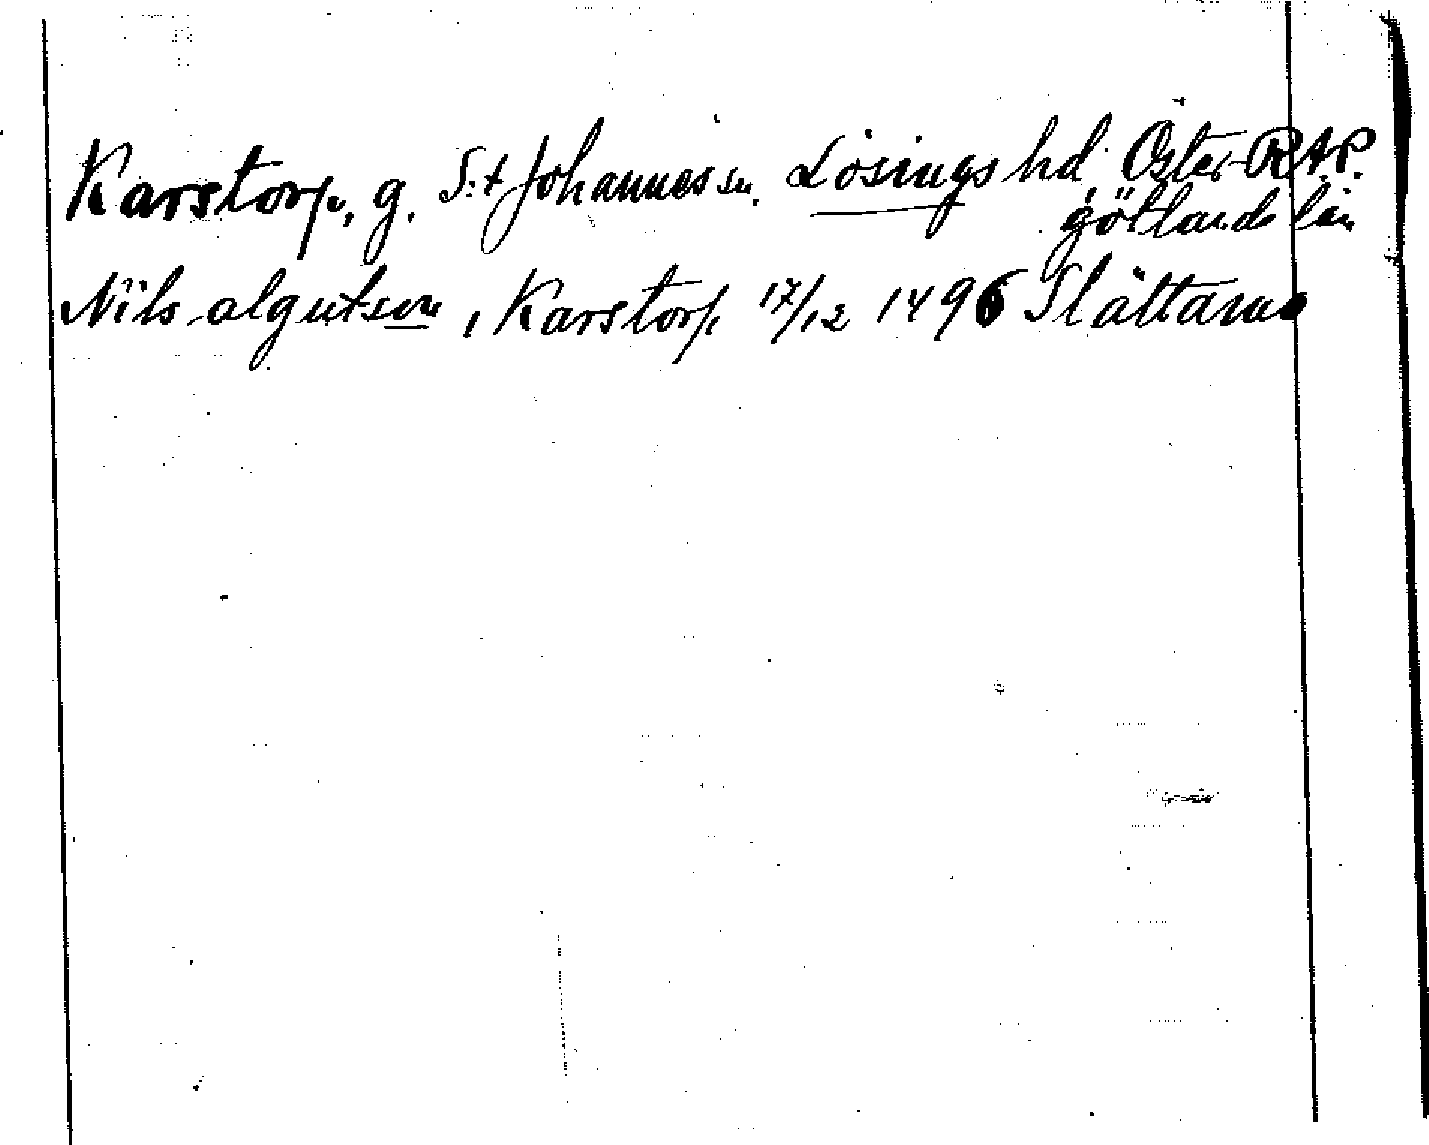 Karstorp, g. S:t Johannes sn. Lösings hd, Öster- RAP.
götlands län
Nils algutson, Karstorp 17/12 1496 Slättamo